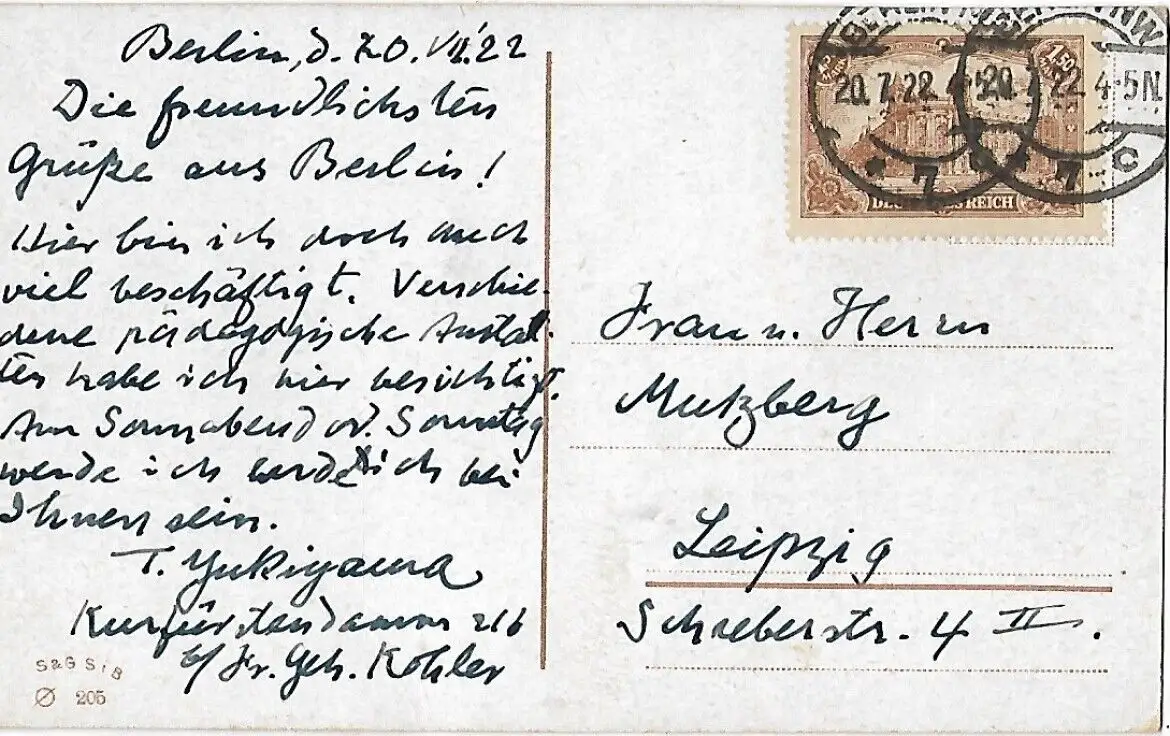 Berlin, d. 20. VII. 22
Die freundlichsten
Grüße aus Berlin!
Hier bin ich doch auch
viel beschäftigt. Verschie-
dene pädagogische Anstal-
ten habe ich hier besichtigt.
Am Sonnabend od. Sonntag
werde ich werde ich bei
Ihnen sein.
T. Yukiyama
Kurfürstendamm 216
b/ Fr. Geh. Kohler
S&G S i B
205
BERLIN NW
20.7.22.4-5N.
* 7
20.7.22.4-5N.
* 7 C
1,50
DEUTSCHES REICH
Frau u. Herrn
Mutzberg
Leipzig
Schreberstr. 4 II.